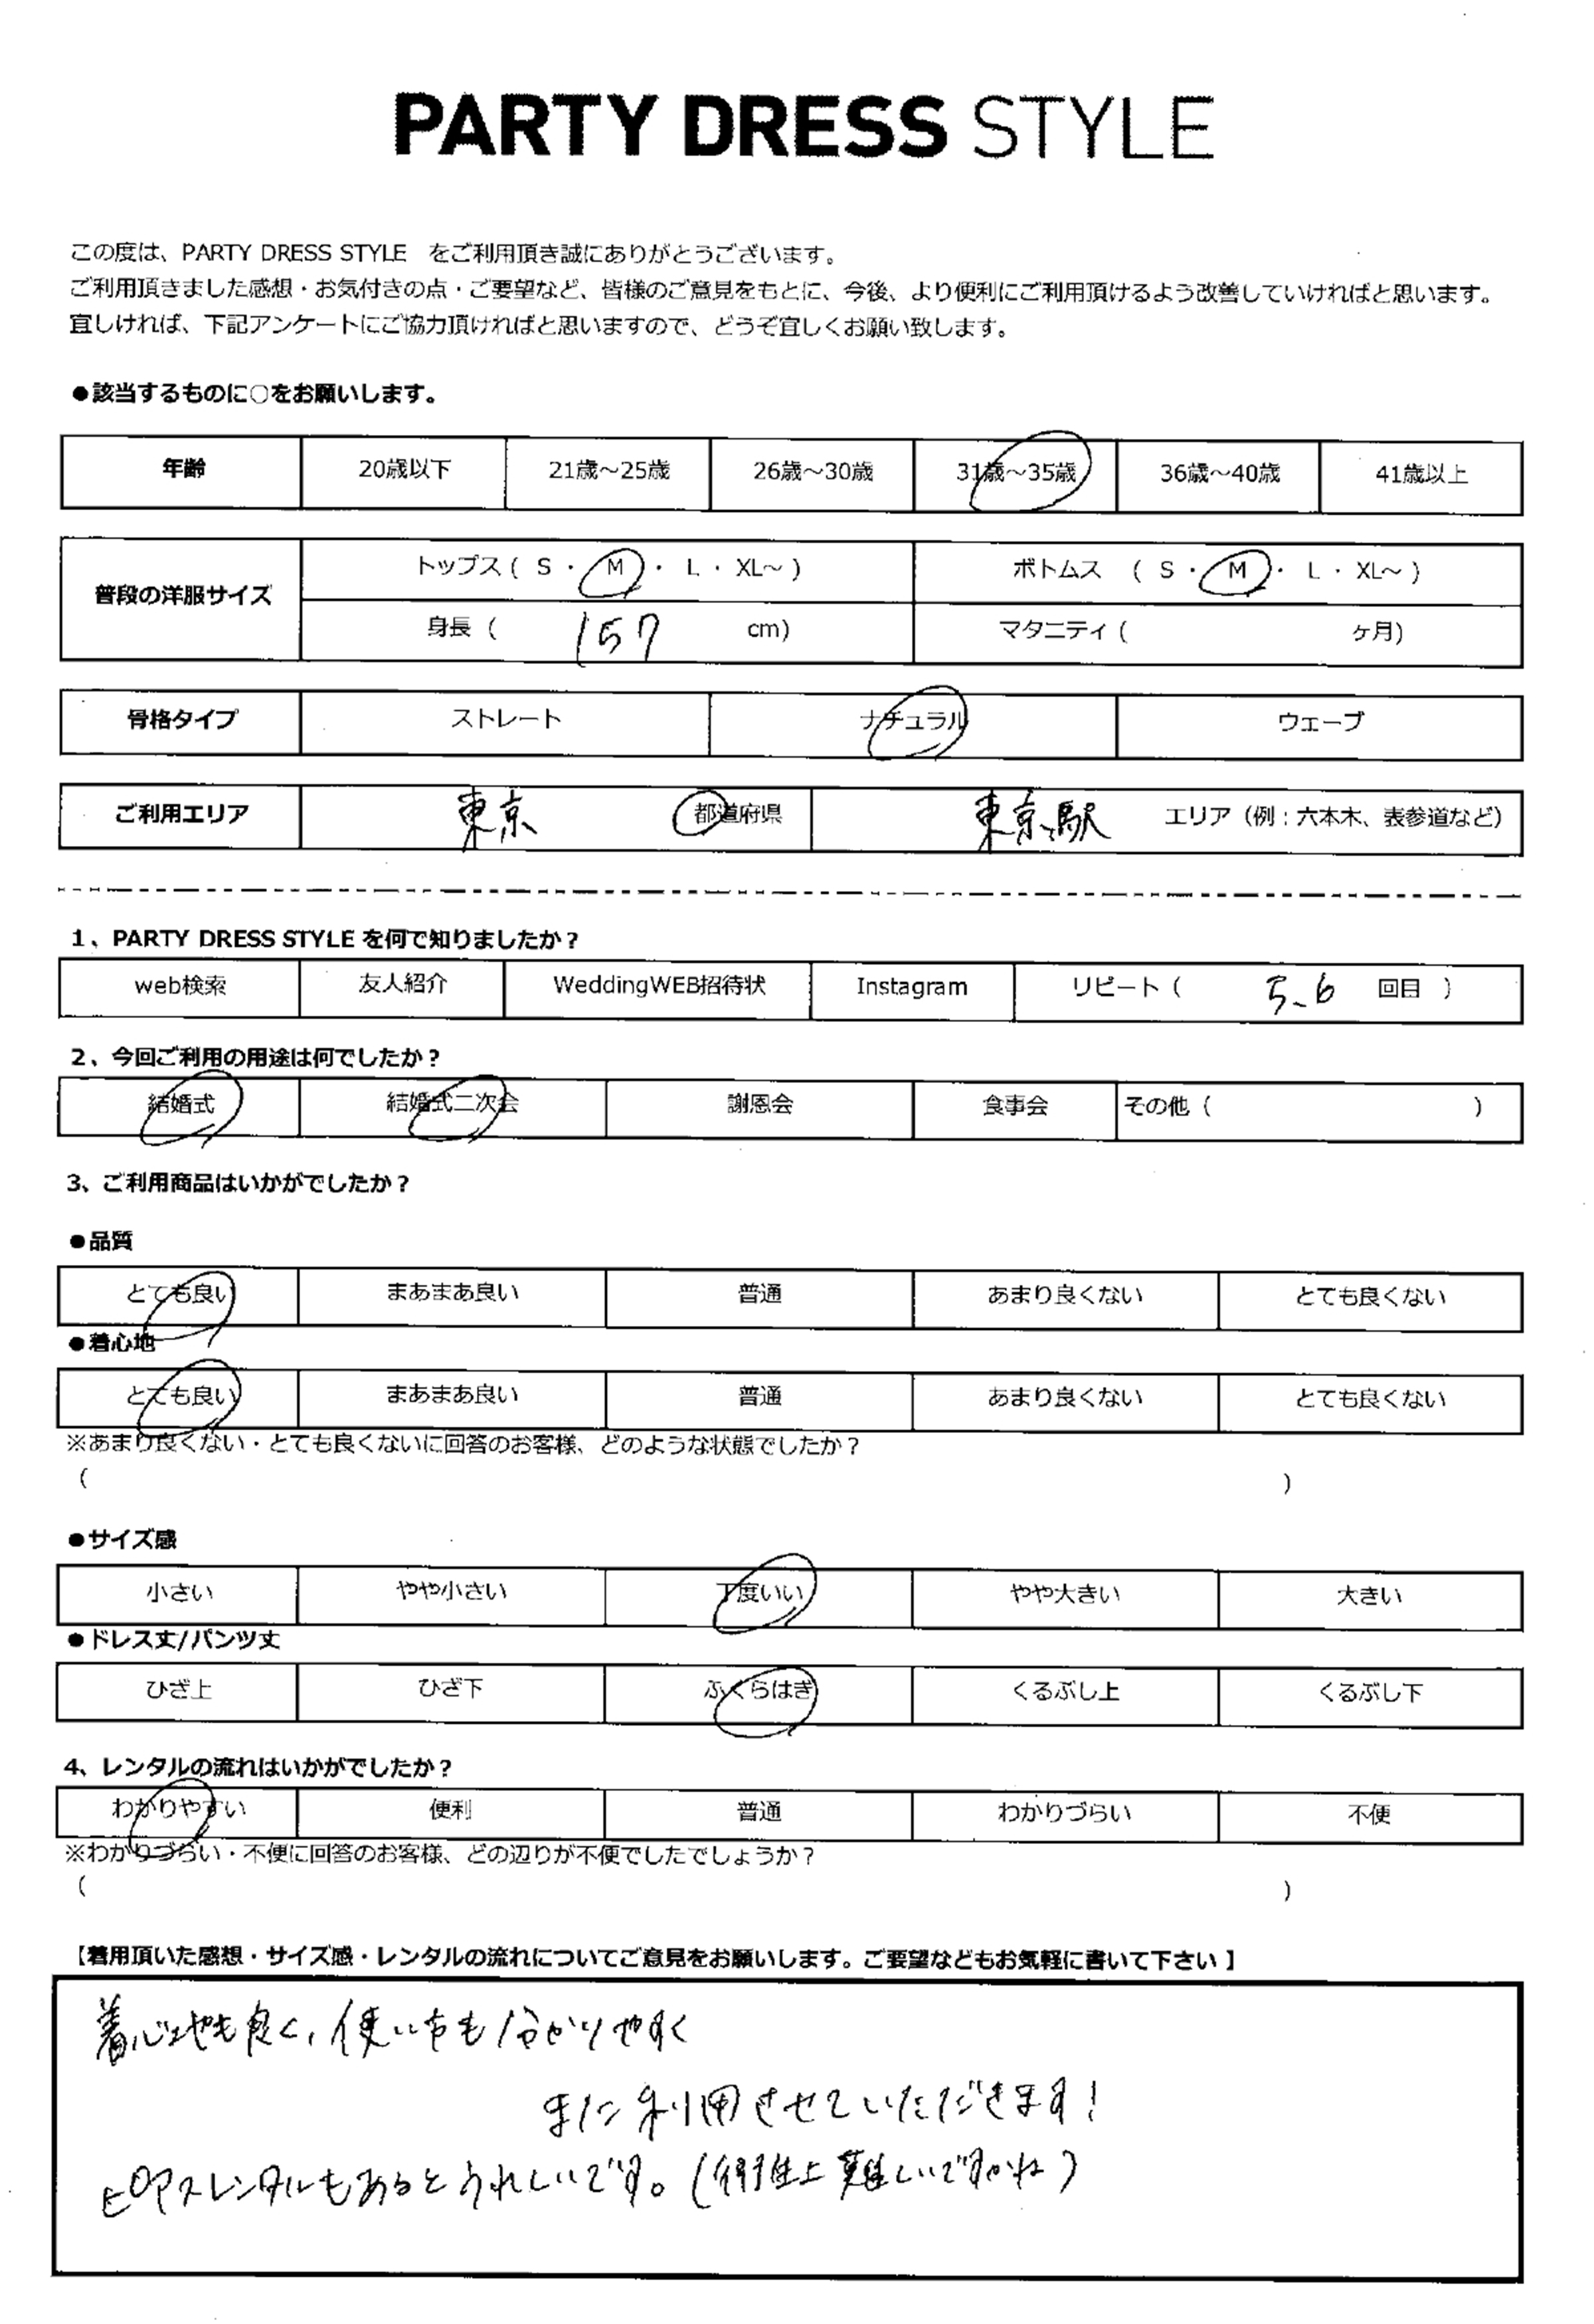 PARTY DRESS STYLE
この度は、PARTY DRESS STYLE をご利用頂き誠にありがとうございます。
ご利用頂きました感想・お気付きの点・ご要望など、皆様のご意見をもとに、今後、より便利にご利用頂けるよう改善していければと思います。
宜しければ、下記アンケートにご協力頂ければと思いますので、どうぞ宜しくお願い致します。
●該当するものに○をお願いします。
年齢 20歳以下 21歳～25歳 26歳～30歳 31歳～35歳 36歳～40歳 41歳以上
普段の洋服サイズ トップス ( S ・ M ・ L ・ XL～ ) ボトムス ( S ・ M ・ L ・ XL～ )
身長 ( 157 cm) マタニティ ( ヶ月)
骨格タイプ ストレート ナチュラル ウェーブ
ご利用エリア 東京 都道府県 東京駅 エリア（例：六本木、表参道など）
1、PARTY DRESS STYLE を何で知りましたか？
web検索 友人紹介 WeddingWEB招待状 Instagram リピート ( 5、6 回目 )
2、今回ご利用の用途は何でしたか？
結婚式 結婚式二次会 謝恩会 食事会 その他 ( )
3、ご利用商品はいかがでしたか？
●品質
とても良い まあまあ良い 普通 あまり良くない とても良くない
●着心地
とても良い まあまあ良い 普通 あまり良くない とても良くない
※あまり良くない・とても良くないに回答のお客様、どのような状態でしたか？
( )
●サイズ感
小さい やや小さい 丁度いい やや大きい 大きい
●ドレス丈/パンツ丈
ひざ上 ひざ下 ふくらはぎ くるぶし上 くるぶし下
4、レンタルの流れはいかがでしたか？
わかりやすい 便利 普通 わかりづらい 不便
※わかりづらい・不便に回答のお客様、どの辺りが不便でしたでしょうか？
( )
【着用頂いた感想・サイズ感・レンタルの流れについてご意見をお願いします。ご要望などもお気軽に書いて下さい 】
着心地も良く、使い方も分かりやすく
また利用させていただきます！
ピアスレンタルもあるとうれしいです。(衛生上難しいですかね)